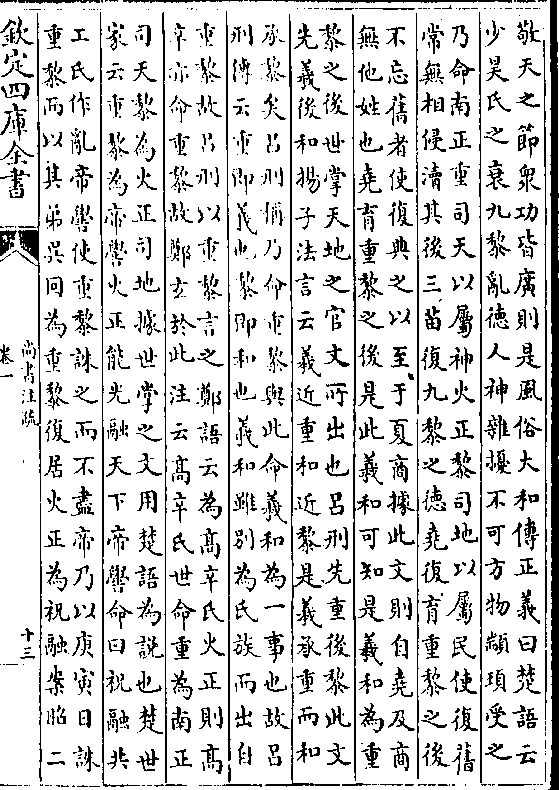 敬天之節衆功皆廣則是風俗大和傳正義曰楚語云
少昊氏之衰九黎亂德人神雜擾不可方物顓頊受之
乃命南正重司天以屬神火正黎司地以屬民使復舊
常無相侵瀆其後三苗復九黎之德堯復育重黎之後
不忘舊者使復典之以至于夏商據此文則自堯及商
無他姓也堯育重黎之後是此羲和可知是羲和為重
黎之後世掌天地之官文所出也呂刑先重後黎此文
先羲後和揚子法言云羲近重和近黎是羲承重而和
承黎矣呂刑稱乃命重黎與此命羲和為一事也故呂
刑傳云重即羲也黎即和也羲和雖別為氏族而出自
重黎故呂刑以重黎言之鄭語云為高辛氏火正則高
辛亦命重黎故鄭玄於此注云高辛氏世命重為南正
司天黎為火正司地據世掌之文用楚語為説也楚世
家云重黎為帝嚳火正能光融天下帝嚳命曰祝融共
工氏作亂帝嚳使重黎誅之而不盡帝乃以庚寅日誅
重黎而以其弟吳回為重黎復居火正為祝融案昭二
欽定四庫全書
尚書注疏
卷一
十三